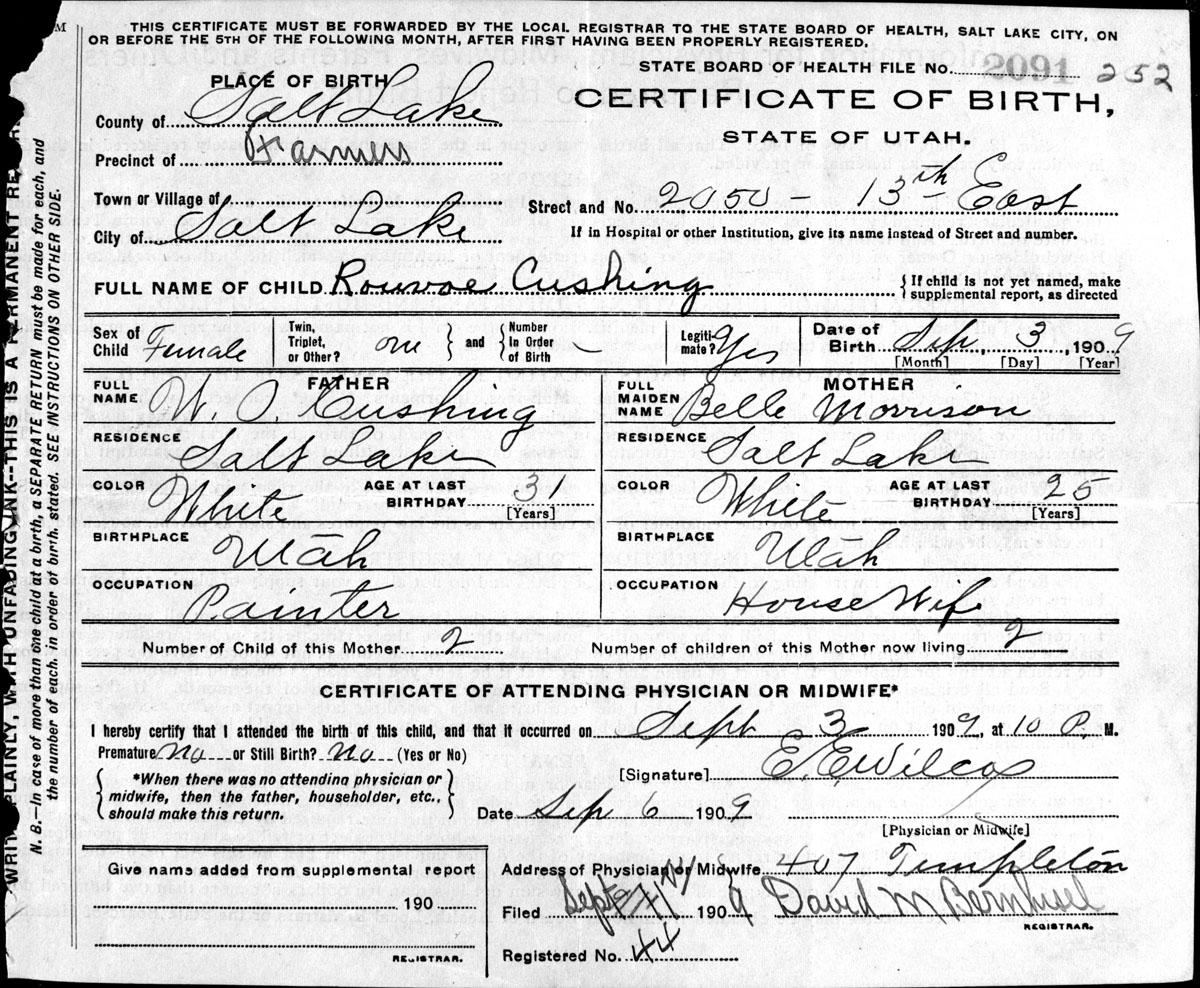 THIS CERTIFICATE MUST BE FORWARDED BY THE LOCAL REGISTRAR TO THE STATE BOARD OF HEALTH, SALT LAKE CITY, ON
OR BEFORE THE 5TH OF THE FOLLOWING MONTH, AFTER FIRST HAVING BEEN PROPERLY REGISTERED.
STATE BOARD OF HEALTH FILE NO. 2091 252
PLACE OF BIRTH
CERTIFICATE OF BIRTH,
STATE OF UTAH.
County of Salt Lake
Precinct of Farmers
Town or Village of
Street and No. 2050 - 13th East
City of Salt Lake
If in Hospital or other Institution, give its name instead of Street and number.
FULL NAME OF CHILD Cushing
{ If child is not yet named, make
supplemental report, as directed
Sex of Child Female
Twin, Triplet, or Other? one } and { Number In Order of Birth –
Legitimate? Yes
Date of Birth Sep, 3, 1909
[Month] [Day] [Year]
FATHER
FULL NAME W. O. Cushing
MOTHER
FULL MAIDEN NAME Belle Morrison
RESIDENCE Salt Lake
RESIDENCE Salt Lake
COLOR White AGE AT LAST BIRTHDAY 31 [Years]
COLOR White AGE AT LAST BIRTHDAY 25 [Years]
BIRTHPLACE Utah
BIRTHPLACE Utah
OCCUPATION Painter
OCCUPATION House Wife
Number of Child of this Mother 2 Number of children of this Mother now living 2
CERTIFICATE OF ATTENDING PHYSICIAN OR MIDWIFE*
I hereby certify that I attended the birth of this child, and that it occurred on Sept 3 1909, at 10 P. M.
Premature No or Still Birth? No (Yes or No)
{ *When there was no attending physician or
midwife, then the father, householder, etc.,
should make this return. }
[Signature] E. E Wilcox
Date Sep 6 1909
[Physician or Midwife]
Give name added from supplemental report
190
REGISTRAR.
Address of Physician or Midwife 407 Templeton
Filed Sept 1909 David M Bernhisel
REGISTRAR.
Registered No. 44
WRITE PLAINLY, WITH UNFADING INK--THIS IS A PERMANENT
N. B.—In case of more than one child at a birth, a SEPARATE RETURN must be made for each, and
the number of each, in order of birth, stated. SEE INSTRUCTIONS ON OTHER SIDE.